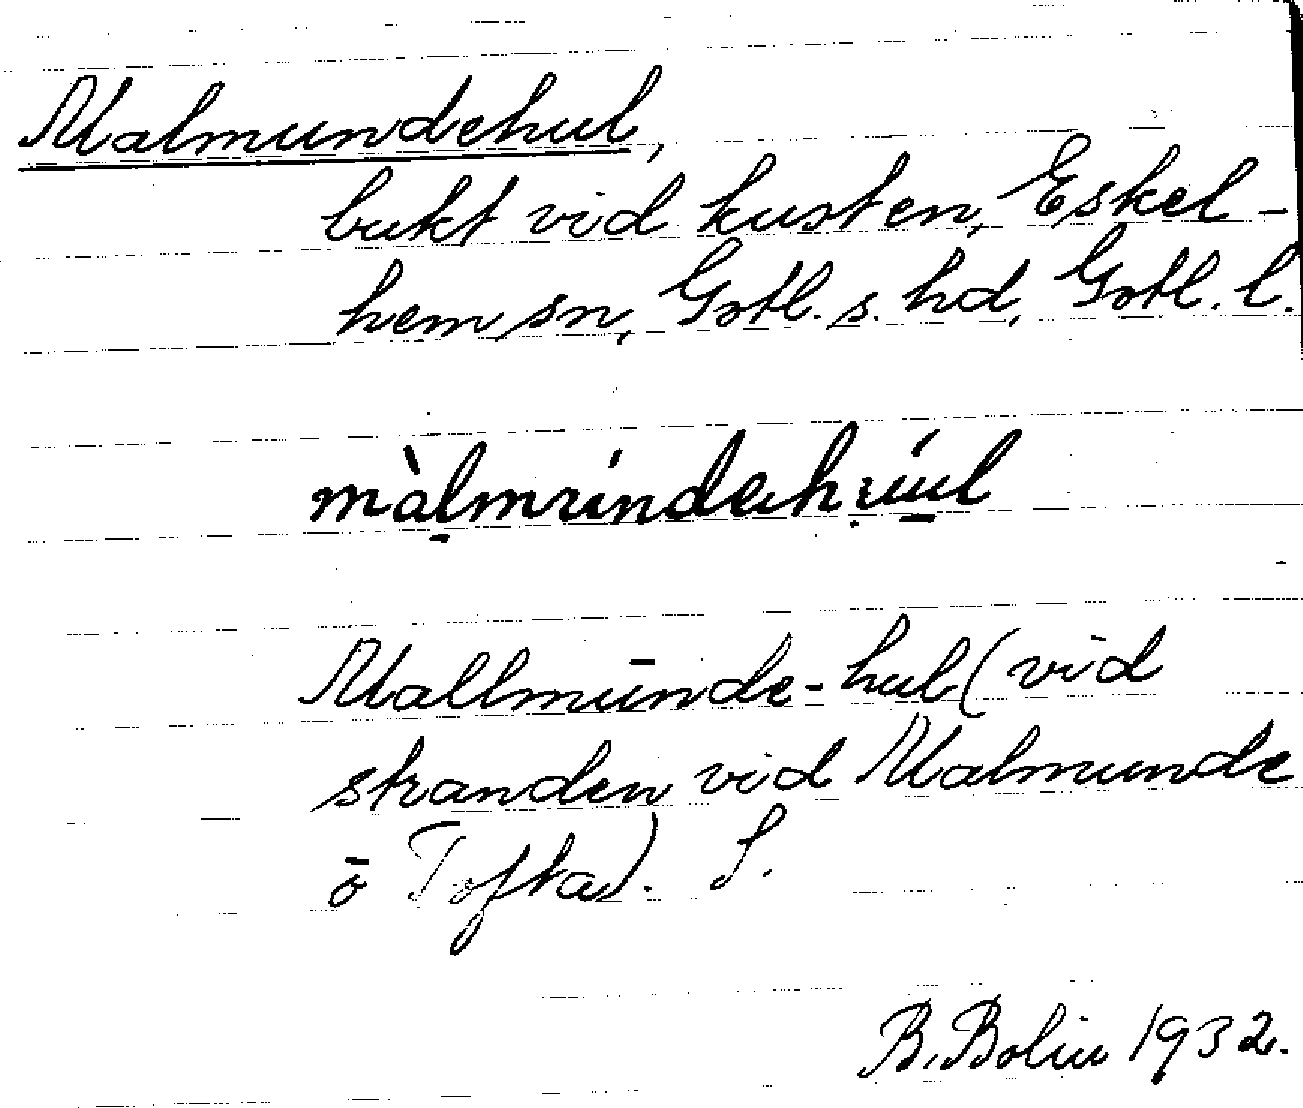 Malmundehul,
bukt vid kusten, Eskel-
hem sn, Gotl. s. hd, Gotl. l.
Mallmūnde-hul (vid
stranden vid Malmunde
ō Tofta). S.
B. Bolin 1932.